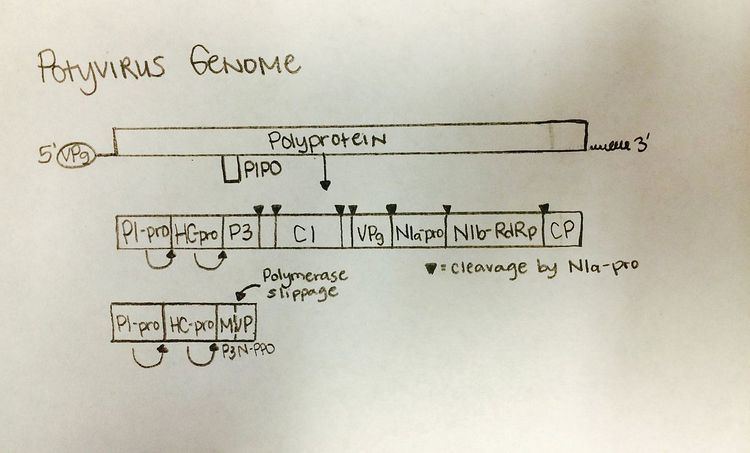 Potyvirus Genome
Polyprotein
5' VPg 3'
PIPO
P1-pro HC-pro P3 CI VPg NIa-pro NIb-RdRp CP
▼ = cleavage by NIa-pro
Polymerase
slippage
P1-pro HC-pro MVP
P3N-PPO